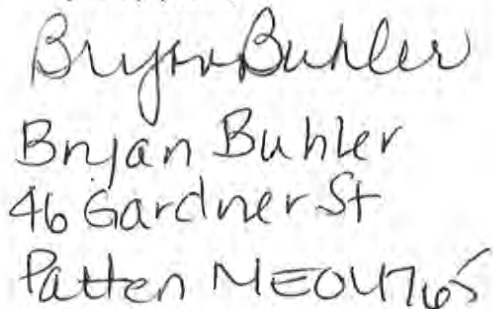 Bryan Buhler
Bryan Buhler
46 Gardner St
Patten ME 04765